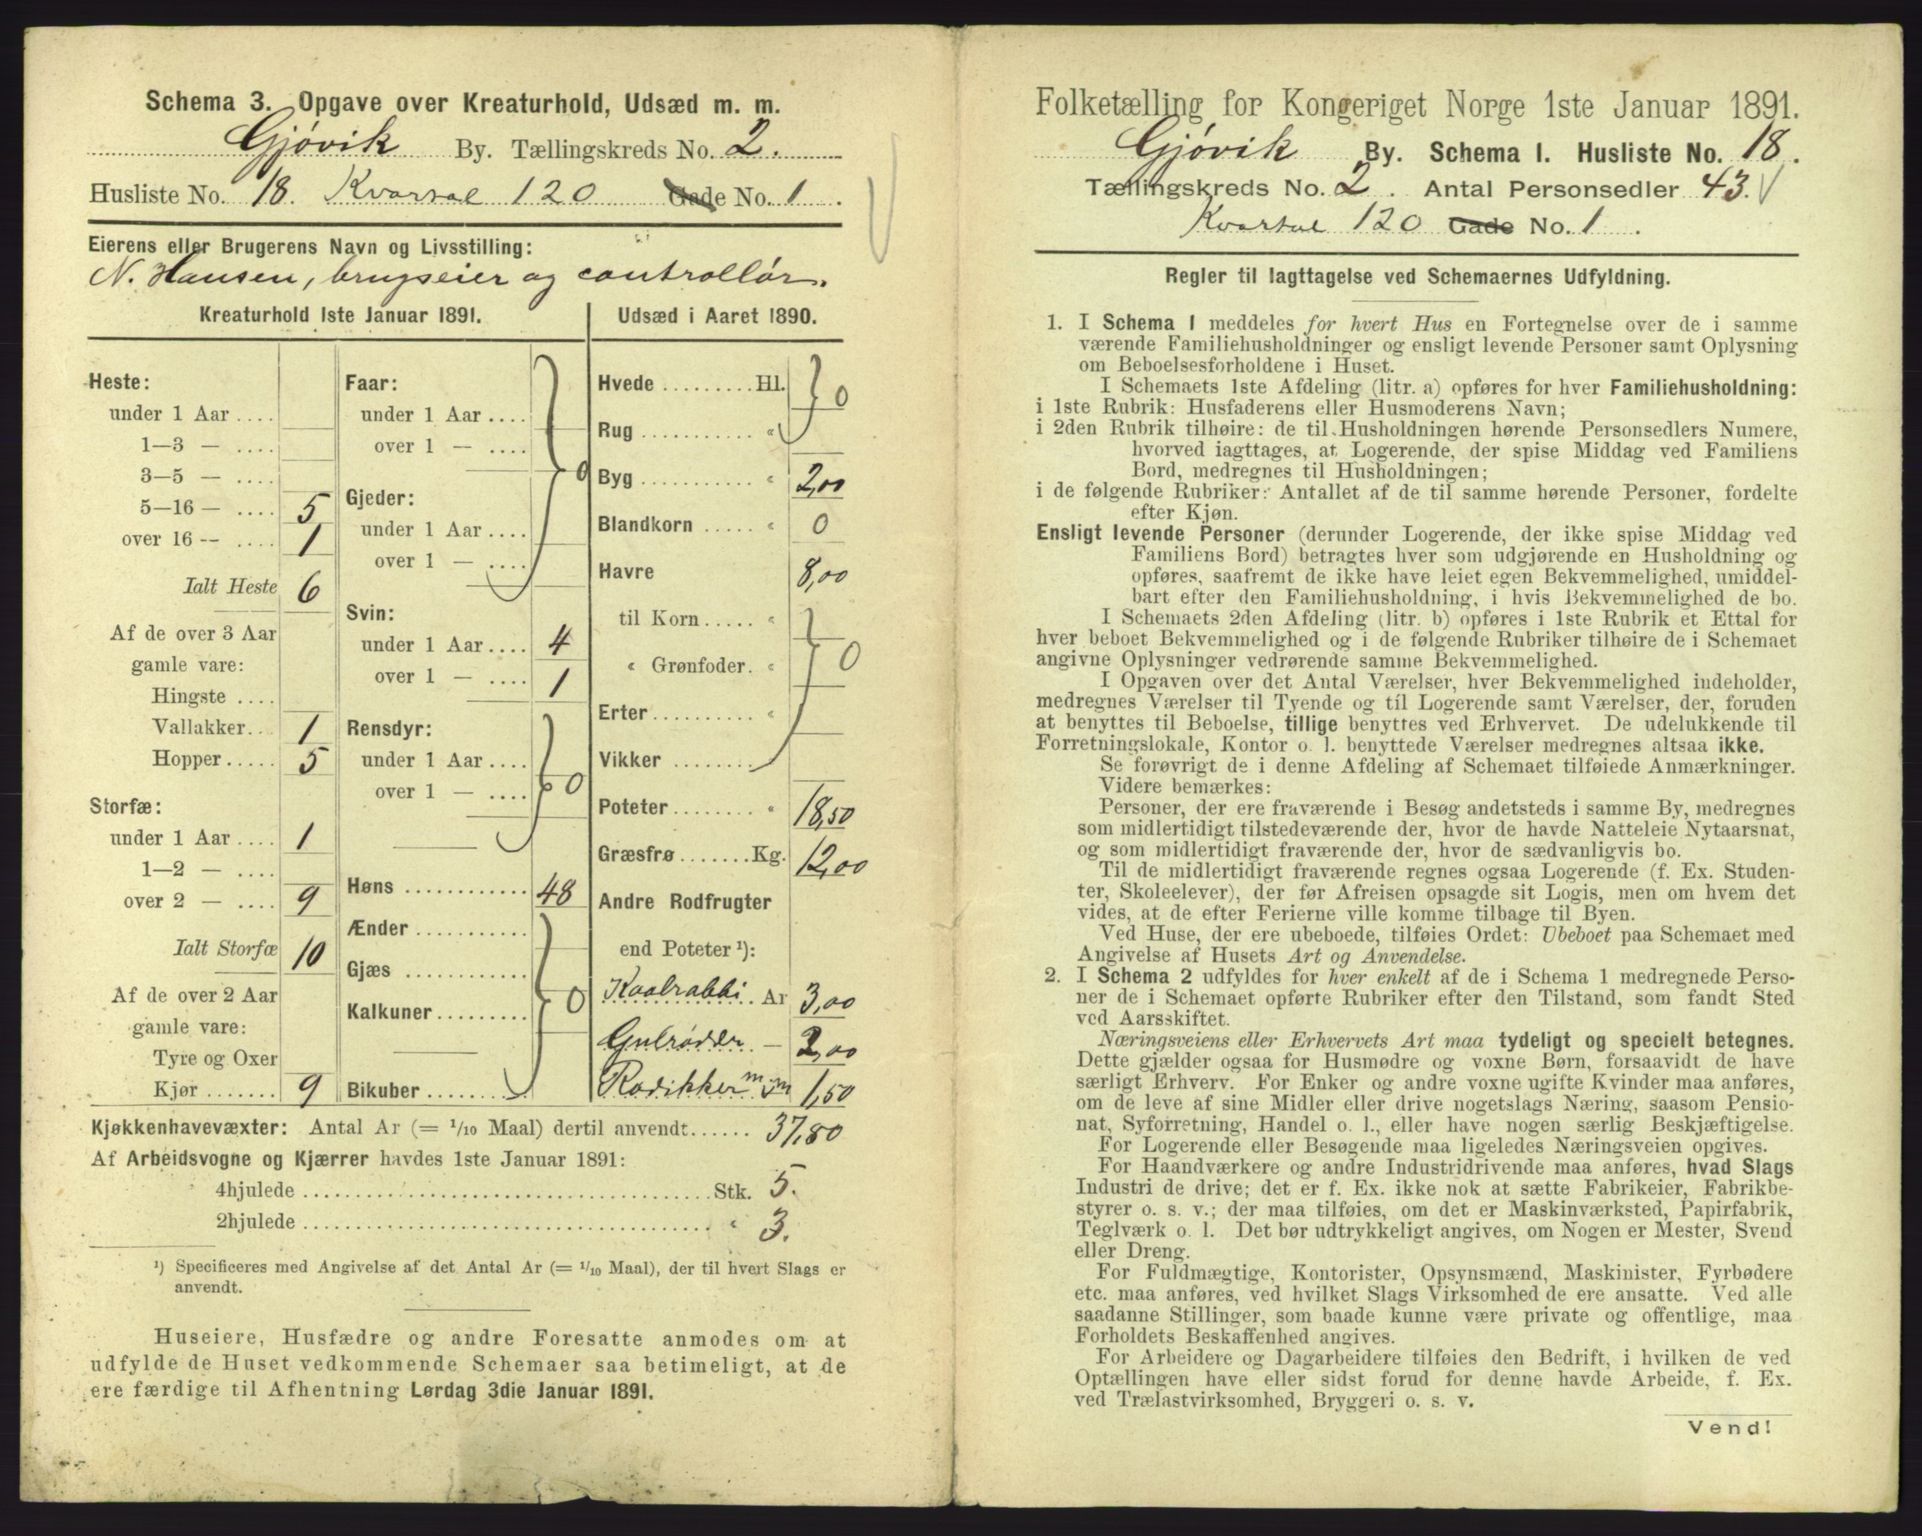 Schema 3. Opgave over Kreaturhold, Udsæd m. m.
Gjøvik By. Tællingskreds No. 2.
Husliste No. 18. Kvartal 120 Gade No. 1.
Eierens eller Brugerens Navn og Livsstilling:
N. Hansen, brugseier og controllør.
Kreaturhold 1ste Januar 1891.
Heste:
under 1 Aar ....
1—3 — ....
3—5 — ....
5—16 — .... 5
over 16 -- .... 1
Ialt Heste 6
Af de over 3 Aar
gamle vare:
Hingste ....
Vallakker.. 1
Hopper..... 5
Storfæ:
under 1 Aar .... 1
1—2 — ....
over 2 — .... 9
Ialt Storfæ 10
Af de over 2 Aar
gamle vare:
Tyre og Oxer
Kjør ....... 9
Faar:
under 1 Aar ....
over 1 — ....
0
Gjeder:
under 1 Aar....
over 1 — ....
Svin:
under 1 Aar.... 4
over 1 — .... 1
Rensdyr:
under 1 Aar....
over 1 — .... 0
Høns ............ 48
Ænder ..........
Gjæs ............
Kalkuner......... 0
Bikuber .........
Udsæd i Aaret 1890.
Hvede ......... Hl. 0
Rug ........... "
Byg ........... " 2,00
Blandkorn ..... " 0
Havre 8,00
til Korn..... "
" Grønfoder. " 0
Erter.......... "
Vikker ........
Poteter........ " 18,50
Græsfrø.......Kg. 12,00
Andre Rodfrugter
end Poteter ¹):
Kaalrabbi Ar 3,00
Gulrødder — 2,00
Rødikker m m 1,50
Kjøkkenhavevæxter: Antal Ar (= 1/10 Maal) dertil anvendt...... 37,80
Af Arbeidsvogne og Kjærrer havdes 1ste Januar 1891:
4hjulede ........................................ Stk. 5.
2hjulede ........................................ " 3.
¹) Specificeres med Angivelse af det Antal Ar (= 1/10 Maal), der til hvert Slags er
anvendt.
Huseiere, Husfædre og andre Foresatte anmodes om at
udfylde de Huset vedkommende Schemaer saa betimeligt, at de
ere færdige til Afhentning Lørdag 3die Januar 1891.
Folketælling for Kongeriget Norge 1ste Januar 1891.
Gjøvik By. Schema 1. Husliste No. 18.
Tællingskreds No. 2. Antal Personsedler 43.
Kvartal 120 Gade No. 1.
Regler til Iagttagelse ved Schemaernes Udfyldning.
1. I Schema 1 meddeles for hvert Hus en Fortegnelse over de i samme
værende Familiehusholdninger og ensligt levende Personer samt Oplysning
om Beboelsesforholdene i Huset.
I Schemaets 1ste Afdeling (litr. a) opføres for hver Familiehusholdning:
i 1ste Rubrik: Husfaderens eller Husmoderens Navn;
i 2den Rubrik tilhøire: de til Husholdningen hørende Personsedlers Numere,
hvorved iagttages, at Logerende, der spise Middag ved Familiens
Bord, medregnes til Husholdningen;
i de følgende Rubriker: Antallet af de til samme hørende Personer, fordelte
efter Kjøn.
Ensligt levende Personer (derunder Logerende, der ikke spise Middag ved
Familiens Bord) betragtes hver som udgjørende en Husholdning og
opføres, saafremt de ikke have leiet egen Bekvemmelighed, umiddel-
bart efter den Familiehusholdning, i hvis Bekvemmelighed de bo.
I Schemaets 2den Afdeling (litr. b) opføres i 1ste Rubrik et Ettal for
hver beboet Bekvemmelighed og i de følgende Rubriker tilhøire de i Schemaet
angivne Oplysninger vedrørende samme Bekvemmelighed.
I Opgaven over det Antal Værelser, hver Bekvemmelighed indeholder,
medregnes Værelser til Tyende og til Logerende samt Værelser, der, foruden
at benyttes til Beboelse, tillige benyttes ved Erhvervet. De udelukkende til
Forretningslokale, Kontor o. l. benyttede Værelser medregnes altsaa ikke.
Se forøvrigt de i denne Afdeling af Schemaet tilføiede Anmærkninger.
Videre bemærkes:
Personer, der ere fraværende i Besøg andetsteds i samme By, medregnes
som midlertidigt tilstedeværende der, hvor de havde Natteleie Nytaarsnat,
og som midlertidigt fraværende der, hvor de sædvanligvis bo.
Til de midlertidigt fraværende regnes ogsaa Logerende (f. Ex. Studen-
ter, Skoleelever), der før Afreisen opsagde sit Logis, men om hvem det
vides, at de efter Ferierne ville komme tilbage til Byen.
Ved Huse, der ere ubeboede, tilføies Ordet: Ubeboet paa Schemaet med
Angivelse af Husets Art og Anvendelse.
2. I Schema 2 udfyldes for hver enkelt af de i Schema 1 medregnede Perso-
ner de i Schemaet opførte Rubriker efter den Tilstand, som fandt Sted
ved Aarsskiftet.
Næringsveiens eller Erhvervets Art maa tydeligt og specielt betegnes.
Dette gjælder ogsaa for Husmødre og voxne Børn, forsaavidt de have
særligt Erhverv. For Enker og andre voxne ugifte Kvinder maa anføres,
om de leve af sine Midler eller drive nogetslags Næring, saasom Pensio-
nat, Syforretning, Handel o. l., eller have nogen særlig Beskjæftigelse.
For Logerende eller Besøgende maa ligeledes Næringsveien opgives.
For Haandværkere og andre Industridrivende maa anføres, hvad Slags
Industri de drive; det er f. Ex. ikke nok at sætte Fabrikeier, Fabrikbe-
styrer o. s. v.; der maa tilføies, om det er Maskinværksted, Papirfabrik,
Teglværk o. l. Det bør udtrykkeligt angives, om Nogen er Mester, Svend
eller Dreng.
For Fuldmægtige, Kontorister, Opsynsmænd, Maskinister, Fyrbødere
etc. maa anføres, ved hvilket Slags Virksomhed de ere ansatte. Ved alle
saadanne Stillinger, som baade kunne være private og offentlige, maa
Forholdets Beskaffenhed angives.
For Arbeidere og Dagarbeidere tilføies den Bedrift, i hvilken de ved
Optællingen have eller sidst forud for denne havde Arbeide, f. Ex.
ved Trælastvirksomhed, Bryggeri o. s. v.
Vend!